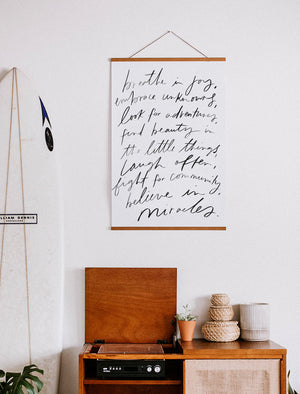 breathe in joy,
embrace unknowns,
look for adventure,
find beauty in
the little things,
laugh often,
fight for community,
believe in
miracles.
DENNIS